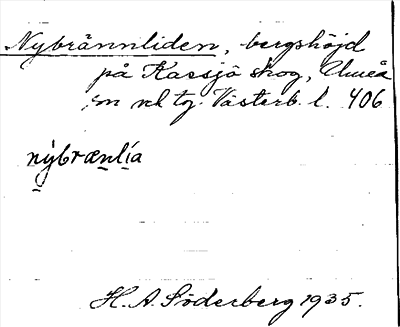 Nybrännliden, bergshöjd
på Kassjö skog, Umeå
sn och tg. Västerb. l. 406
nybrænlia
H. A. Söderberg 1935.